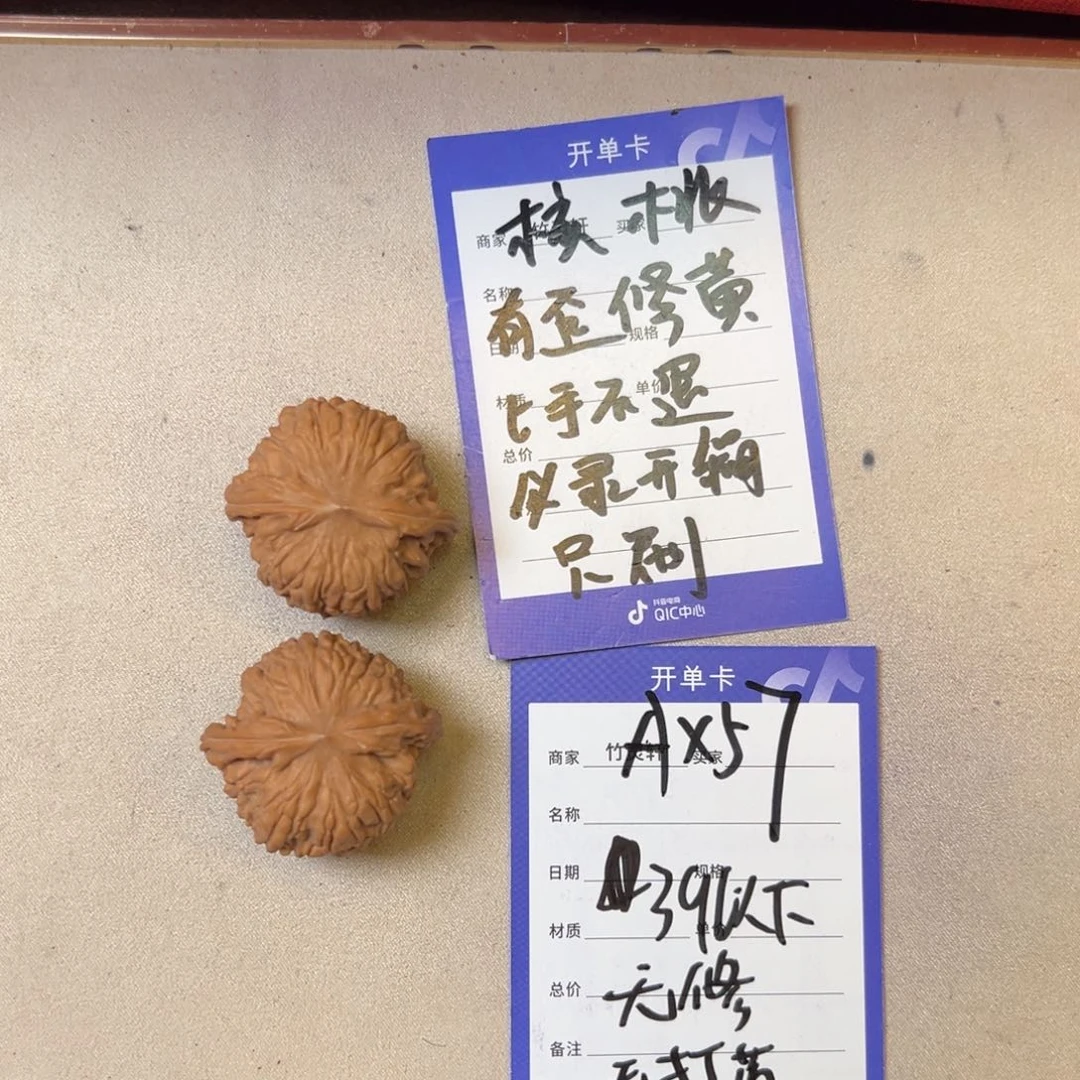 开单卡
核桃
商家 竹 轩 买家
名称
有歪修黄
日期 规格
材质 单价
上手不退
总价
必录开箱
只刷
抖音电商
QIC中心
开单卡
AX57
商家 竹灵轩 买家
名称
日期 规格
39以下
材质 单价
总价
无修
备注
无打黄